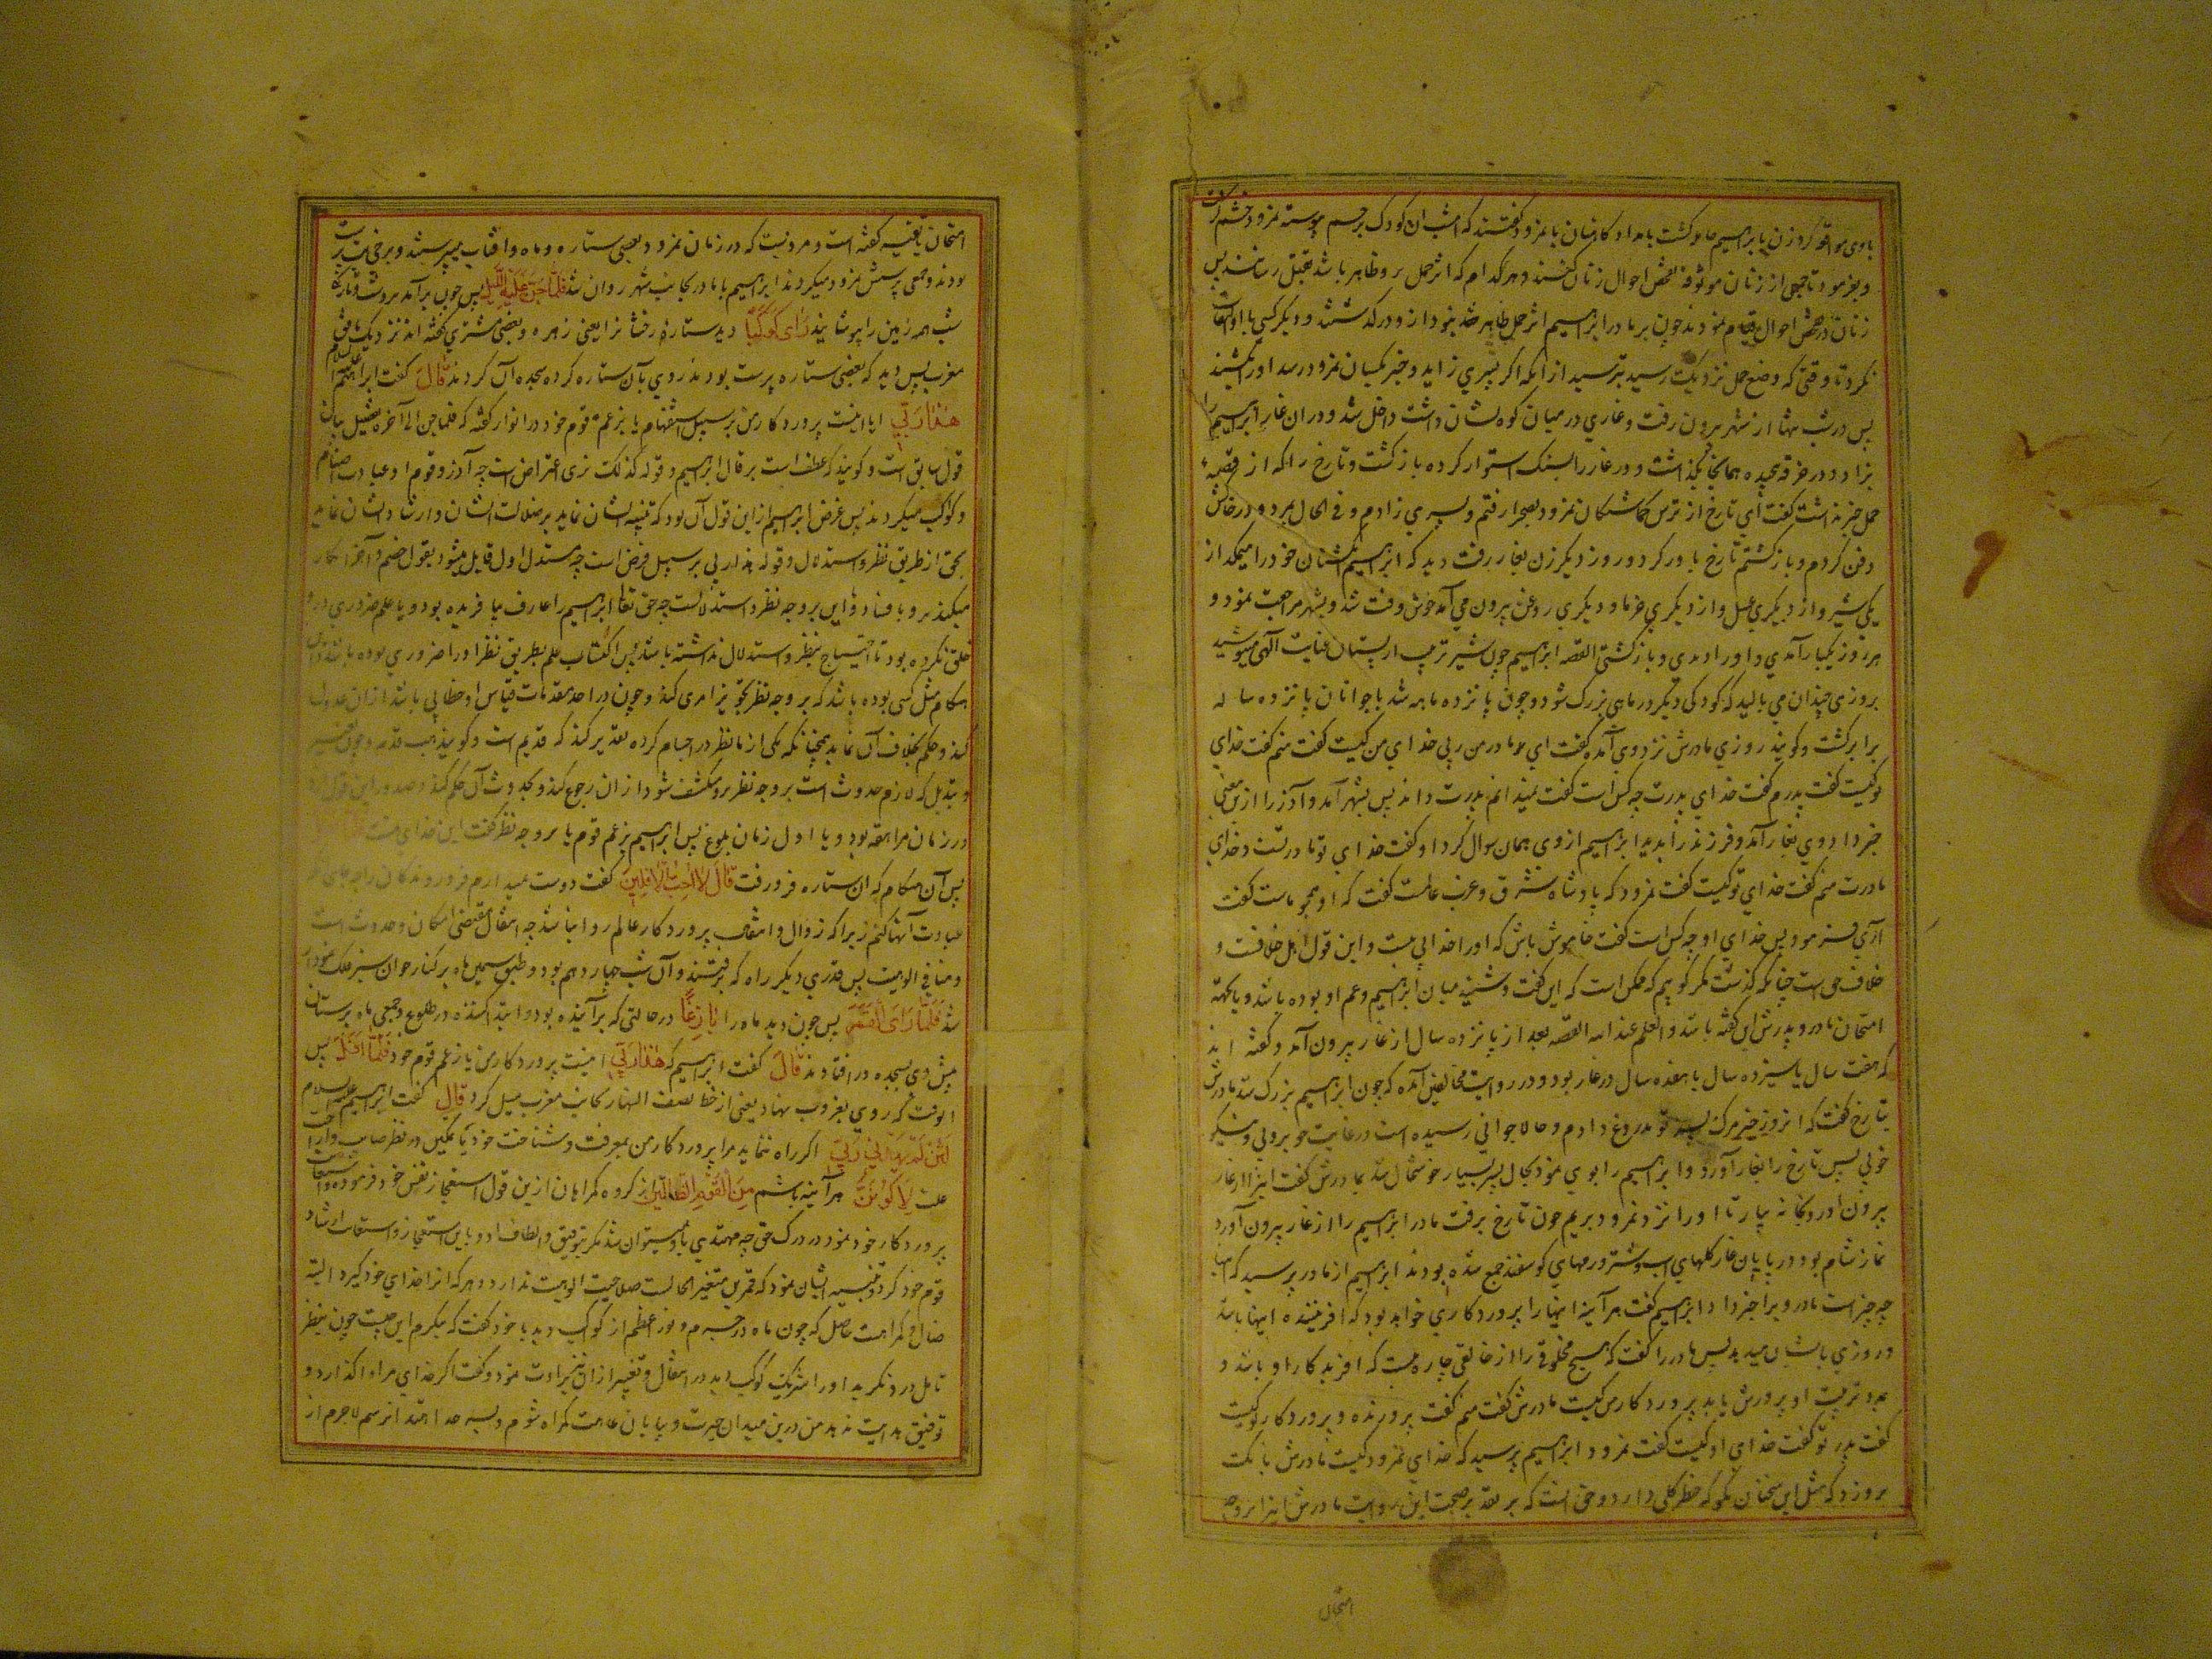 باوی مواقعه کرد زن بابراهیم حامله کشت بامداد کاهنان با نمرود کفتند که امشب آن کودک برحم پیوسته نمرود خشم کرفت
و بفرمود تا جمعی از زنان موثوقه تفحص احوال زنان کنند و هر کدام که اثر حمل برو ظاهر باشد بقتل رسانند پس
زنان در تفحص احوال قیام نمودند چون بر مادر ابراهیم اثر حمل ظاهر نشده بود ازو در کذشتند و دیکر کسی با او التفات
نکرد تا وقتی که وضع حمل نزدیک رسید بترسید از آنکه اکر پسری زاید و خبر بکسان نمرود رسد او را بکشند
پس در شب تنها از شهر بیرون رفت و غاری در میان کوه نشان داشت داخل شد و در ان غار ابراهیم را
بزاد و در خرقه پیچیده همانجا بکذاشت و در غار را بسنک استوار کرده بازکشت و تارخ را که از قصهٔ
حمل خبر نداشت کفت ای تارخ از ترس کماشتکان نمرود بصحرا رفتم و پسری زادم و فی الحال بمرد و در خاکش
دفن کردم و بازکشتم تارخ باور کرد و روز دیکر زن بغار رفت دید که ابراهیم انکشتان خود را میمکد از
یکی شیر و از دیکری عسل و از دیکری خرما و دیکری روغن بیرون می آمد خوش وقت شد و بشهر مراجعت نمود و
هر روز یکبار آمدی و او را دیدی و بازکشتی القصه ابراهیم چون شیر تربیت از پستان عنایت الهی مینوشید
بروزی چندان می بالید که کودکی دیکر در ماهی بزرک شود و چون پانزده ماهه شد با جوانان پانزده ساله
برابر کشت و کویند روزی مادرش نزد وی آمده کفت ای مادر من ربی خدای من کیست کفت منم کفت خدای
تو کیست کفت پدرم کفت خدای پدرت چه کس است کفت نمیدانم پدرت داند پس بشهر آمد و آذر را ازین معنی
خبر داد وی بغار آمد و فرزند را بدید ابراهیم از وی همان سوال کرد او کفت خدای تو مادر تست و خدای
مادرت منم کفت خدای تو کیست کفت نمرود که پادشاه شرق و غرب عالمست کفت که او همچو ماست کفت
آری فرمود پس خدای او چه کس است کفت خاموش باش که او را خدایی نیست و این قول اهل خلافت و
خلاف حق است چنانکه کذشت مکر کوییم که ممکن است که این کفت و شنید میان ابراهیم و عم او بوده باشد و یا بجهة
امتحان مادر و پدرش این کفته باشد و العلم عند الله القصه بعد از پانزده سال از غار بیرون آمد و کفته اند
که هفت سال یا سیزده سال یا هفده سال در غار بود و در روایت مخالفین آمده که چون ابراهیم بزرک شد مادرش
بتارخ کفت که انروز خبر مرک پسر تو بدروغ دادم و حالا جوانی رسیده است در غایت خوبرویی و نیکو
خویی پس تارخ را بغار آورد و ابراهیم را بوی نمود بجمال پسر بسیار خوشحال شد بمادرش کفت اینرا از غار
بیرون آور و بخانه بیار تا او را نزد نمرود بریم چون تارخ برفت مادر ابراهیم را از غار بیرون آورد
نماز شام بود در پایان غار کلهای اسب و شتر و رمهای کوسفند جمع شده بودند ابراهیم از مادر پرسید که اینها
چه چیز است مادر ویرا خبر داد ابراهیم کفت هر آینه اینها را پروردکاری خواهد بود که افریننده اینها باشد
و روزی بایشان میدهد پس مادر را کفت که هیچ مخلوقی را از خالقی چاره نیست که افریدکار او باشد و
بمدد تربیت او پرورش یابد پروردکار من کیست مادرش کفت منم کفت پرورنده و پروردکار تو کیست
کفت پدر تو کفت خدای او کیست کفت نمرود ابراهیم پرسید که خدای نمرود کیست مادرش بانک
برو زد که مثل این سخنان مکو که خطر کلی دارد و حق انست که بر تقدیر صحت این روایت مادرش اینرا بر وجه
امتحان
امتحان یا تقیه کفته است و مرویست که در زمان نمرود بعضی ستاره و ماه و افتاب میپرستیدند و برخی بت پرست
بودند و جمعی پرستش نمرود میکردند ابراهیم با مادر بجانب شهر روان شد فَلَمَّا جَنَّ عَلَيْهِ اللَّيْلُ پس چون برآمد برو شب و تاریکی
شب همه زمین را بپوشانید رَأَى كَوْكَبًا دید ستاره رخشان را یعنی زهره و بعضی مشتری کفته اند نزدیک بافق
مغرب پس دید که بعضی ستاره پرست بودند روی بآن ستاره کرده سجده آن کردند قَالَ کفت ابراهیم علیه السلام
هَٰذَا رَبِّي ایا اینست پروردکار من بر سبیل استفهام یا بزعم قوم خود در انوار کفته که فلما جن الی آخره تفصیل بیان
قول سابق است و کویند که عطف است بر قال ابراهیم و قوله کذلک نری اعتراض است چه آذر و قوم او عبادت اصنام
و کواکب میکردند پس غرض ابراهیم از این قول آن بود که تنبیه ایشان نماید بر ضلالت ایشان و ارشاد ایشان نماید
بحق از طریق نظر و استدلال و قوله هذا ربی بر سبیل فرض است چه مستدل اول قایل میشود بقول خصم و آخر انکار
میکند برو بافساد و این بر وجه نظر و استدلالست چه حق تعالی ابراهیم را عارف بیافریده بود و یا علم ضروری درو
خلق نکرده بود تا احتیاج بنظر و استدلال نداشته باشد پس اکتساب علم بطریق نظر او را ضروری بوده باشد و این
هنکام مثل کسی بوده باشد که بر وجه نظر تجویز امری کند و چون در احد مقدمات قیاس او خطایی باشد از ان عدول
کند و حکم بخلاف آن نماید همچنانکه یکی از ما نظر در اجسام کرده تقدیر کند که قدیم است و کویند هب قدمه و چون تغییر
و تبدیل که لازم حدوث است بر وجه نظر برو منکشف شود از ان رجوع کند و بحدوث آن حکم کند و صدور این قول از و
در زمان مراهقه بود و یا اول زمان بلوغ پس ابراهیم بزعم قوم یا بر وجه نظر کفت این خدای منست
پس آن هنکام که ان ستاره فرو رفت قَالَ لَا أُحِبُّ الْآفِلِينَ کفت دوست نمیدارم فرو روندکان را
عبادت آنها کنم زیرا که زوال و انتقال بپروردکار عالم روا نباشد چه انتقال مقتضی امکان و حدوث است
و منافی الوهیت پس قدری دیکر راه که برفتند و آن شب چهاردهم بود و طبق سیمین ماه بر کنار خوان سبز فلک نمودار
شد فَلَمَّا رَأَى الْقَمَرَ پس چون دید ماه را بَازِغًا در حالتی که برآینده بود و ابتدا کننده در طلوع و جمعی ماه پرستان
پیش وی بسجده در افتادند قَالَ کفت ابراهیم که هَٰذَا رَبِّي اینست پروردکار من یا بزعم قوم خود فَلَمَّا أَفَلَ پس
انوقت که روی بغروب نهاد یعنی از خط نصف النهار بجانب مغرب میل کرد قَالَ کفت ابراهیم علیه السلام
لَئِن لَّمْ يَهْدِنِي رَبِّي اکر راه ننماید مرا پروردکار من بمعرفت و شناخت خود یا تمکین در نظر صایب و ازاحت
علت لَأَكُونَنَّ هر آینه باشم مِنَ الْقَوْمِ الضَّالِّينَ از کروه کمراهان ازین قول استعجاز نفس خود فرموده و استعانت
پروردکار خود نمود در درک حق چه مهتدی باو نمیتوان شد مکر بتوفیق و الطاف او و باین استعجاز و استعانت ارشاد
قوم خود کرد و تنبیه ایشان نمود که قمر بن متغیر الحالست صلاحیت الوهیت ندارد و هر که انرا خدای خود کیرد البته
ضال و کمراهست حاصل که چون ماه در جسم و نور اعظم از کواکب دید با خود کفت که بنکرم این چیست چون بنظر
تامل درو نکرید او را شریک کوکب دید در انتقال و تغییر از ان نیز برائت نمود و کفت اکر خدای مرا واکذارد و
توفیق هدایت ندهد من درین میدان حیرت و بیابان عنایت کمراه شوم و بسر حد اهتدا نرسم لاجرم از